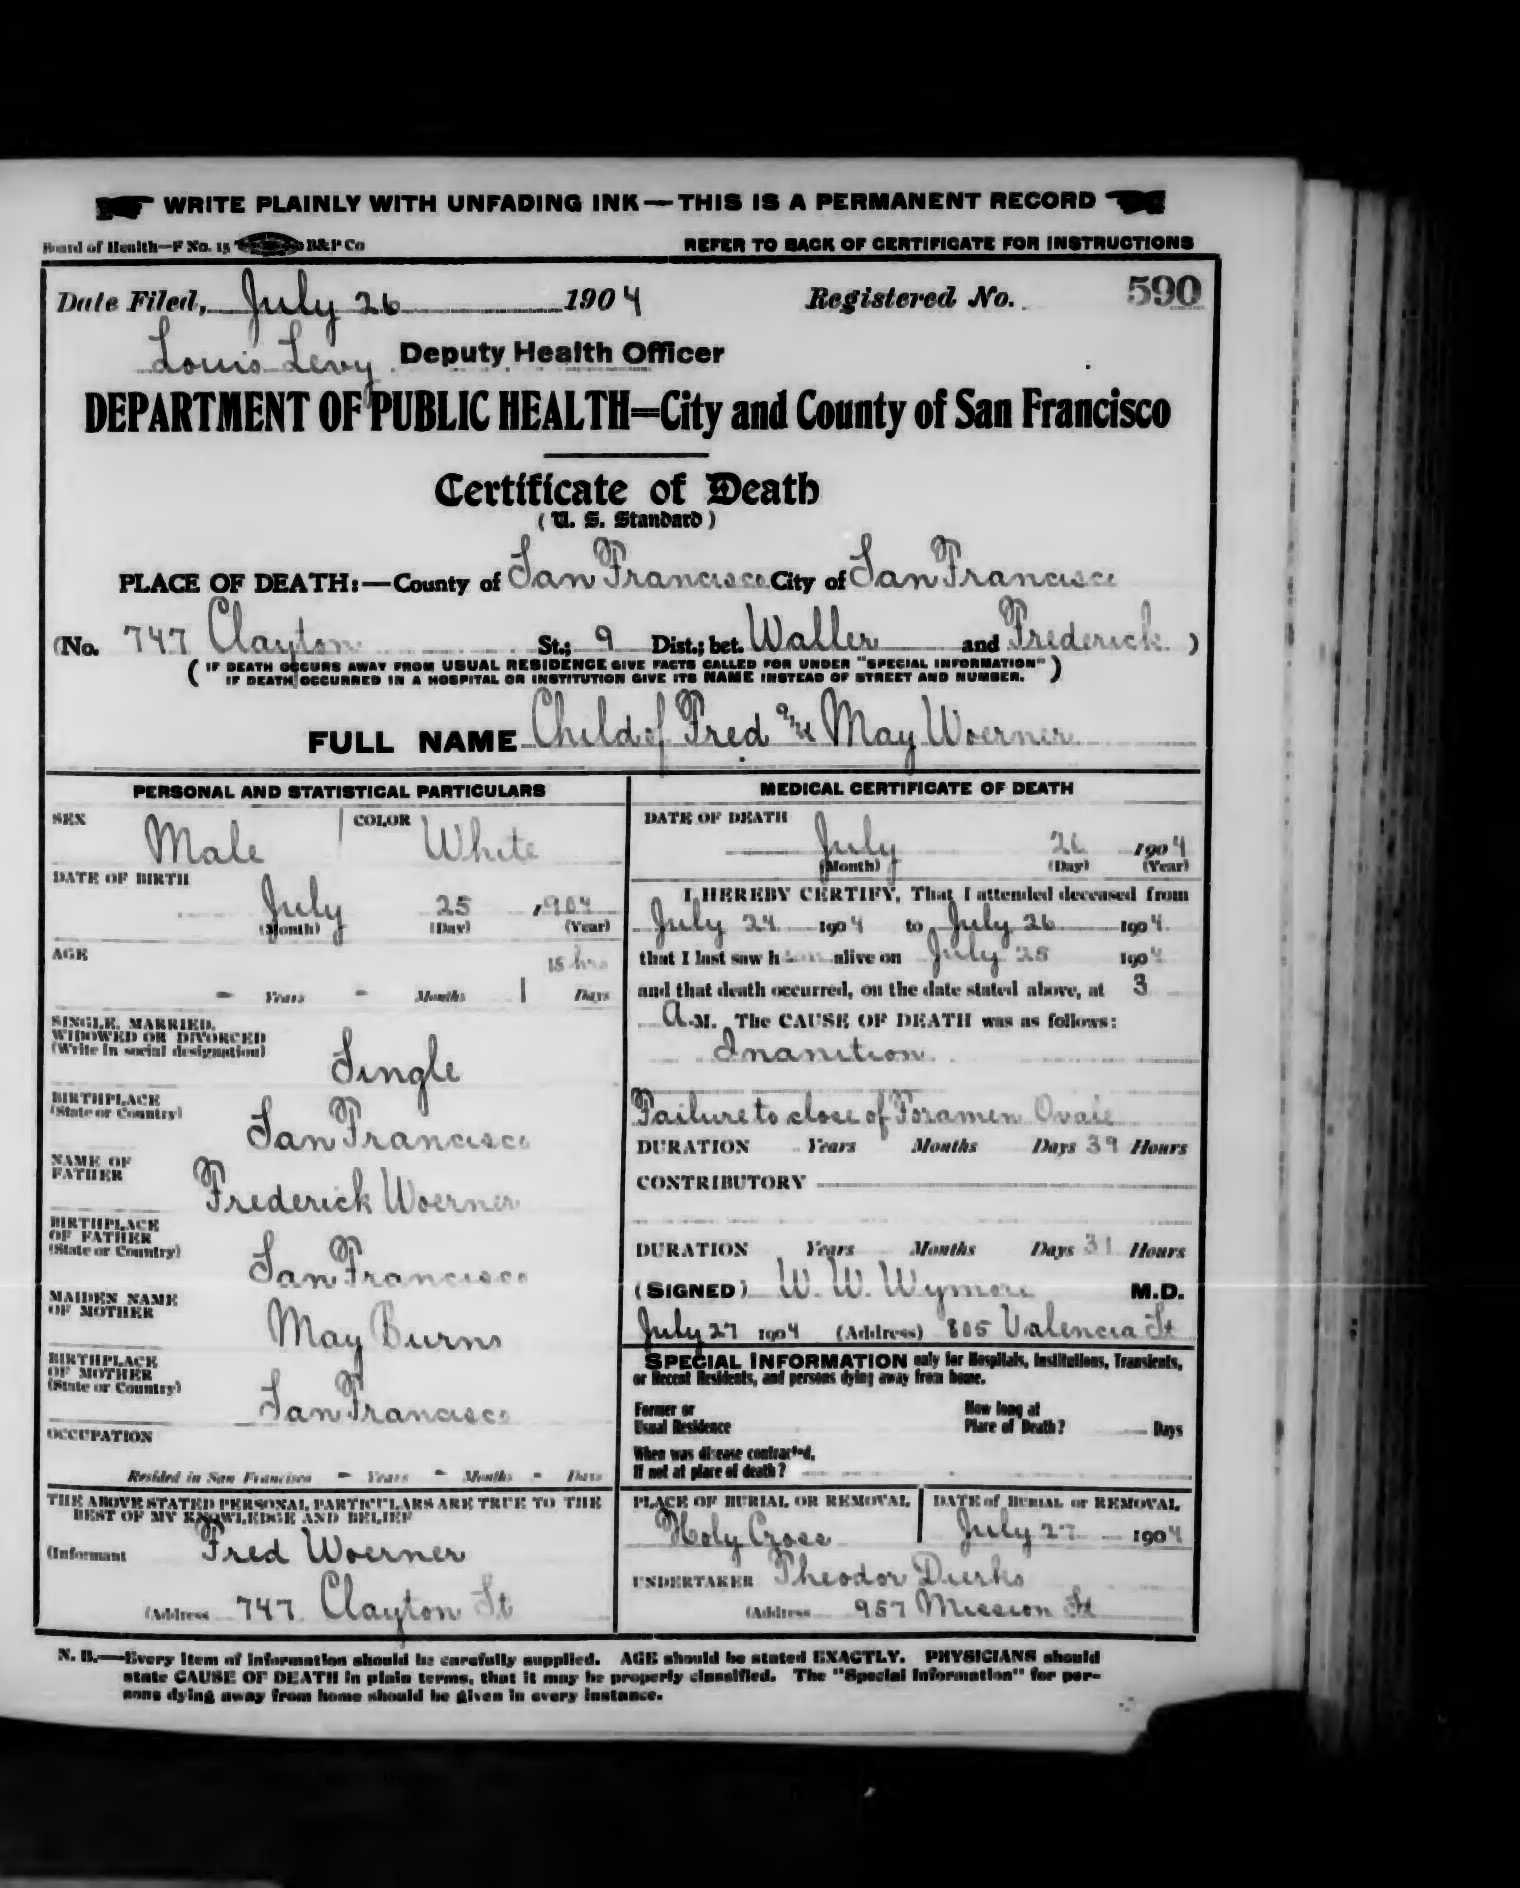 WRITE PLAINLY WITH UNFADING INK — THIS IS A PERMANENT RECORD
Board of Health—F No. 15 B&P Co REFER TO BACK OF CERTIFICATE FOR INSTRUCTIONS
Date Filed, July 26 1904 Registered No. 590
Louis Levy Deputy Health Officer
DEPARTMENT OF PUBLIC HEALTH=City and County of San Francisco
Certificate of Death
(U. S. Standard)
PLACE OF DEATH:—County of San Francisco City of San Francisco
(No. 747 Clayton St.; 9 Dist.; bet. Waller and Frederick )
( IF DEATH OCCURS AWAY FROM USUAL RESIDENCE GIVE FACTS CALLED FOR UNDER "SPECIAL INFORMATION" )
IF DEATH OCCURRED IN A HOSPITAL OR INSTITUTION GIVE ITS NAME INSTEAD OF STREET AND NUMBER.
FULL NAME Child of Fred & May Woerner
PERSONAL AND STATISTICAL PARTICULARS
SEX Male COLOR White
DATE OF BIRTH
July 25 1904
(Month) (Day) (Year)
AGE 15 hrs
- Years - Months 1 Days
SINGLE, MARRIED,
WIDOWED OR DIVORCED
(Write in social designation)
Single
BIRTHPLACE
(State or Country)
San Francisco
NAME OF
FATHER
Frederick Woerner
BIRTHPLACE
OF FATHER
(State or Country)
San Francisco
MAIDEN NAME
OF MOTHER
May Burns
BIRTHPLACE
OF MOTHER
(State or Country)
San Francisco
OCCUPATION
Resided in San Francisco - Years - Months - Days
THE ABOVE STATED PERSONAL PARTICULARS ARE TRUE TO THE
BEST OF MY KNOWLEDGE AND BELIEF
(Informant Fred Woerner
(Address 747 Clayton St
MEDICAL CERTIFICATE OF DEATH
DATE OF DEATH
July 26 1904
(Month) (Day) (Year)
I HEREBY CERTIFY, That I attended deceased from
July 24 1904 to July 26 1904
that I last saw h alive on July 25 1904
and that death occurred, on the date stated above, at 3
A.M. The CAUSE OF DEATH was as follows:
Inanition
Failure to close of Foramen Ovale
DURATION Years Months Days 39 Hours
CONTRIBUTORY
DURATION Years Months Days 31 Hours
(SIGNED) W. W. Wymore M.D.
July 27 1904 (Address) 805 Valencia St
SPECIAL INFORMATION only for Hospitals, Institutions, Transients,
or Recent Residents, and persons dying away from home.
Former or
Usual Residence
How long at
Place of Death? Days
When was disease contracted,
If not at place of death?
PLACE OF BURIAL OR REMOVAL DATE of BURIAL or REMOVAL
Holy Cross July 27 1904
UNDERTAKER Theodor Dierks
(Address 957 Mission St
N. B.—Every item of information should be carefully supplied. AGE should be stated EXACTLY. PHYSICIANS should
state CAUSE OF DEATH in plain terms, that it may be properly classified. The "Special Information" for per-
sons dying away from home should be given in every instance.